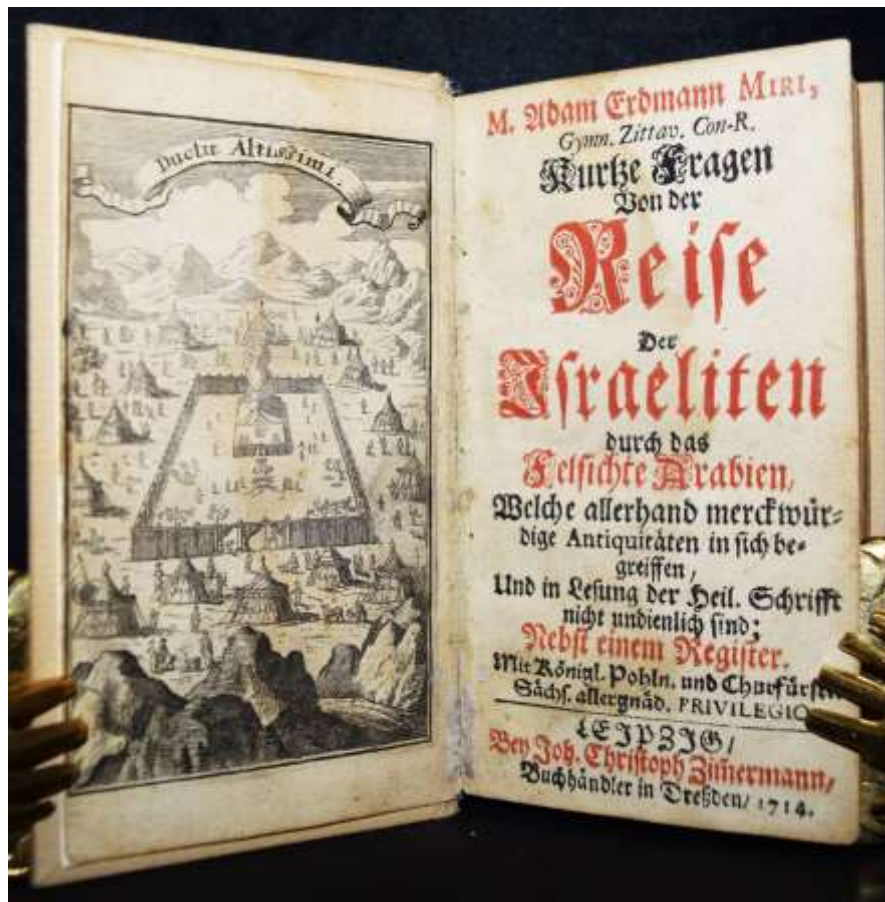 Ductu Altissimi.
M. Adam Erdmann MIRI,
Gymn. Zittav. Con-R.
Kurtze Fragen
Von der
Reise
Der
Israeliten
durch das
Felsichte Arabien,
Welche allerhand merckwür-
dige Antiquitäten in sich be-
greiffen,
Und in Lesung der Heil. Schrifft
nicht undienlich sind;
Nebst einem Register.
Mit Königl. Pohln. und Churfürstl.
Sächs. allergnäd. PRIVILEGIO
LEIPZIG/
Bey Joh. Christoph Zim̃ermann,
Buchhändler in Dreßden/ 1714.